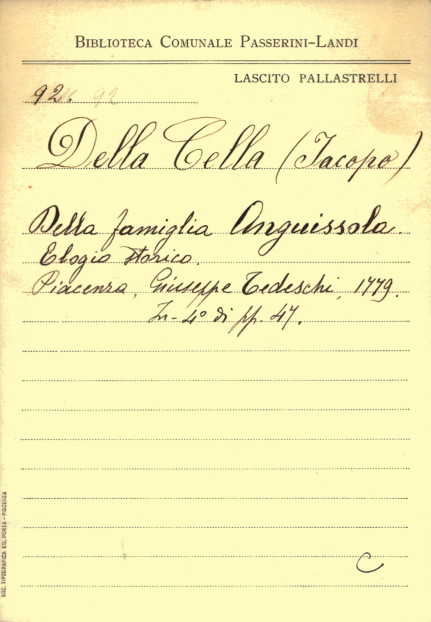 BIBLIOTECA COMUNALE PASSERINI-LANDI
LASCITO PALLASTRELLI
92. 92
Della Cella (Jacopo)
Della famiglia Anguissola.
Elogio storico.
Piacenza, Giuseppe Tedeschi, 1779.
In-4° di pp. 47.
C
SOC. TIPOGRAFICA ED. PORTA - PIACENZA